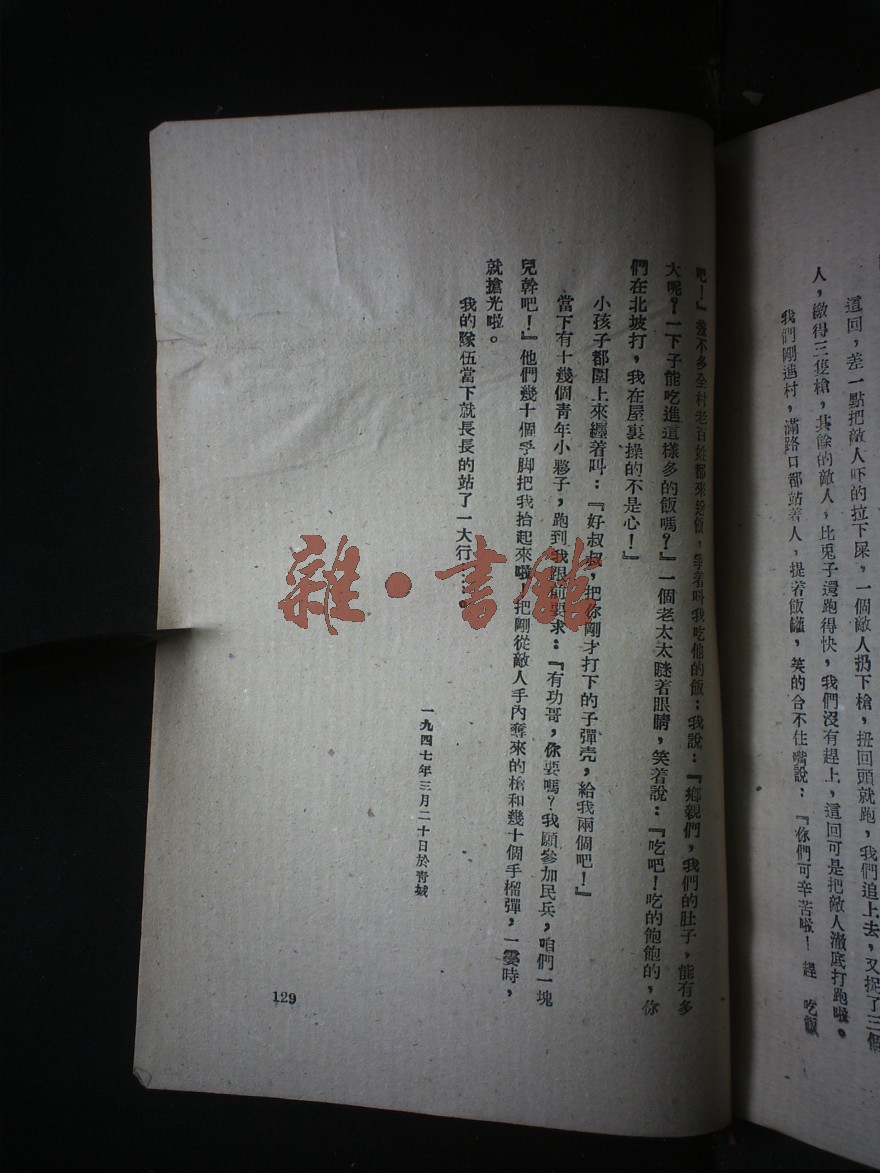 這回，差一點把敵人吓的拉下屎，一個敵人扔下槍，扭回頭就跑，我們追上去，又捉了三個
人，繳得三隻槍，其餘的敵人，比兎子還跑得快，我們沒有趕上，這回可是把敵人澈底打跑啦。
我們剛進村，滿路口都站着人，提着飯罐，笑的合不住嘴說：『你們可辛苦啦！趕 吃飯
吧！』差不多全村老百姓都來送飯，爭着叫我吃他的飯：我說：『鄉親們，我們的肚子，能有多
大呢？一下子能吃進這樣多的飯嗎？』一個老太太瞇着眼睛，笑着說：『吃吧！吃的飽飽的，你
們在北坡打，我在屋裏操的不是心！』
小孩子都圍上來纏着叫：『好叔叔，把你剛才打下的子彈壳，給我兩個吧！』
當下有十幾個青年小夥子，跑到我跟前要求：『有功哥，你要嗎？我願參加民兵，咱們一塊
兒幹吧！』他們幾十個手脚把我抬起來啦！把剛從敵人手內奪來的槍和幾十個手榴彈，一霎時，
就搶光啦。
我的隊伍當下就長長的站了一大行。
一九四七年三月二十日於青城
129
雜·書館